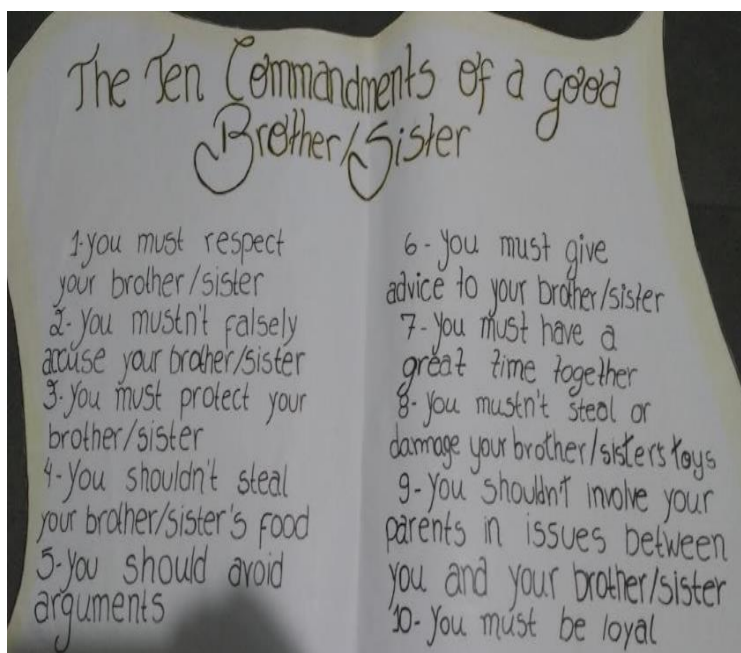 The Ten Commandments of a good
Brother/Sister
1-you must respect
your brother/sister
2-you mustn't falsely
accuse your brother/sister
3-you must protect your
brother/sister
4-you shouldn't steal
your brother/sister's food
5-you should avoid
arguments
6-you must give
advice to your brother/sister
7-you must have a
great time together
8-you mustn't steal or
damage your brother/sister's toys
9-you shouldn't involve your
parents in issues between
you and your brother/sister
10-you must be loyal